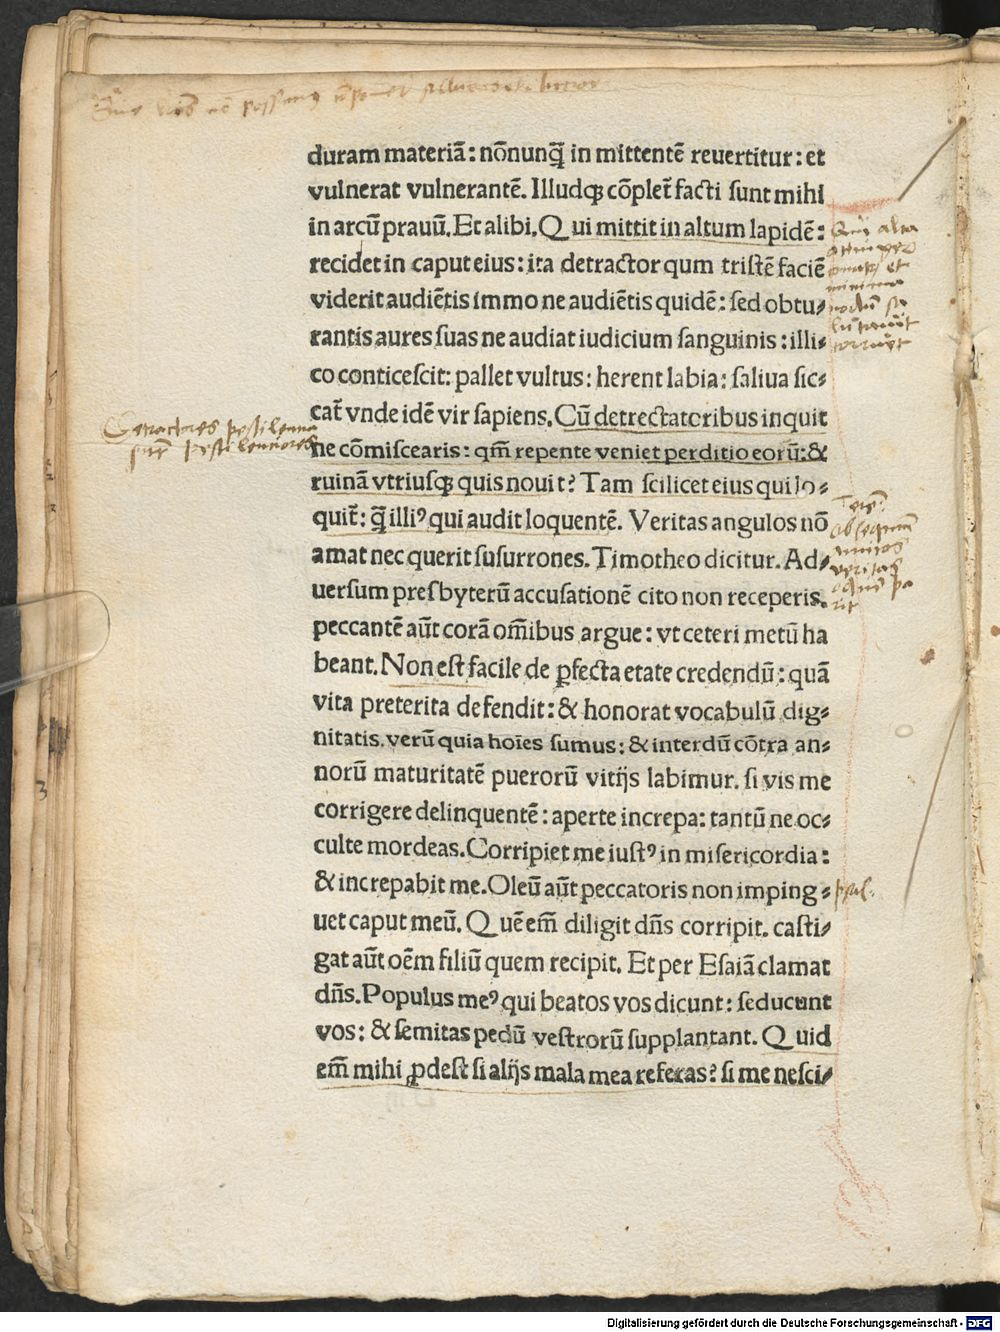 duram materiã: nõnunq̃ in mittentẽ reuertitur: et
vulnerat vulnerantẽ. Illudqꝫ cõplet̃ facti sunt mihi
in arcũ prauũ. Et alibi. Qui mittit in altum lapidẽ:
recidet in caput eius: ita detractor qum tristẽ faciẽ
viderit audiẽtis immo ne audiẽtis quidẽ: sed obtu⸗
rantis aures suas ne audiat iudicium sanguinis: illi⸗
co conticescit: pallet vultus: herent labia: saliua sic⸗
cat̃ vnde idẽ vir sapiens. Cũ detrectatoribus inquit
ne cõmiscearis: qm̃ repente veniet perditio eorũ: &
ruinã vtriusqꝫ quis nouit? Tam scilicet eius qui lo⸗
quit̃: q̃ illiꝰ qui audit loquentẽ. Veritas angulos nõ
amat nec querit susurrones. Timotheo dicitur. Ad⸗
uersum presbyterũ accusationẽ cito non receperis.
peccantẽ aũt corã om̃ibus argue: vt ceteri metũ ha
beant. Non est facile de ꝑfecta etate credendũ: quã
vita preterita defendit: & honorat vocabulũ dig⸗
nitatis. verũ quia hoĩes sumus: & interdũ cõtra an⸗
norũ maturitatẽ puerorũ vitijs labimur. si vis me
corrigere delinquentẽ: aperte increpa: tantũ ne oc⸗
culte mordeas. Corripiet me iustꝰ in misericordia:
& increpabit me. Oleũ aũt peccatoris non imping⸗
uet caput meũ. Quẽ em̃ diligit dñs corripit. casti⸗
gat aũt oẽm filiũ quem recipit. Et per Esaiã clamat
dñs. Populus meꝰ qui beatos vos dicunt: seducunt
vos: & semitas pedũ vestrorũ supplantant. Quid
em̃ mihi ꝓdest si alijs mala mea referas? si me nesci⸗
Detractores pestilenciores
3
Digitalisierung gefördert durch die Deutsche Forschungsgemeinschaft - DFG